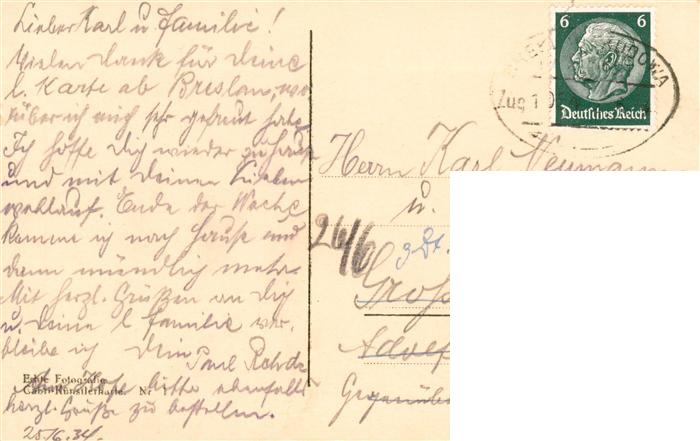 Lieber Karl u Familie!
Vielen Dank für Deine
l. Karte ab Breslau, wo
rüber ich mich sehr gefreut habe.
Ich hoffe Dich wieder zu Hause
und mit Deinen Lieben
wohlauf. Ende der Woche
komme ich nach Hause und
dann mündlich mehr.
Mit herzl. Grüßen an Dich
u. Deine l Familie ver-
bleibe ich Dein Paul Rohde
bitte ebenfalls
herzl. Grüße zu bestellen.
25/6.34.
Echte Fotografie
Künstlerkarte. Nr 1
6 6
Deutsches Reich
UDOWA
Zug 1
Herrn Karl Neumann
u.
26/6
Groß
Adolf
Gegenüber